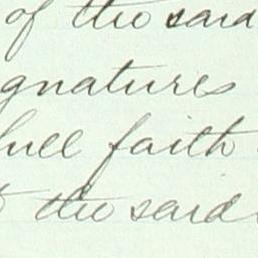 of the said
gnatures
full faith
the said